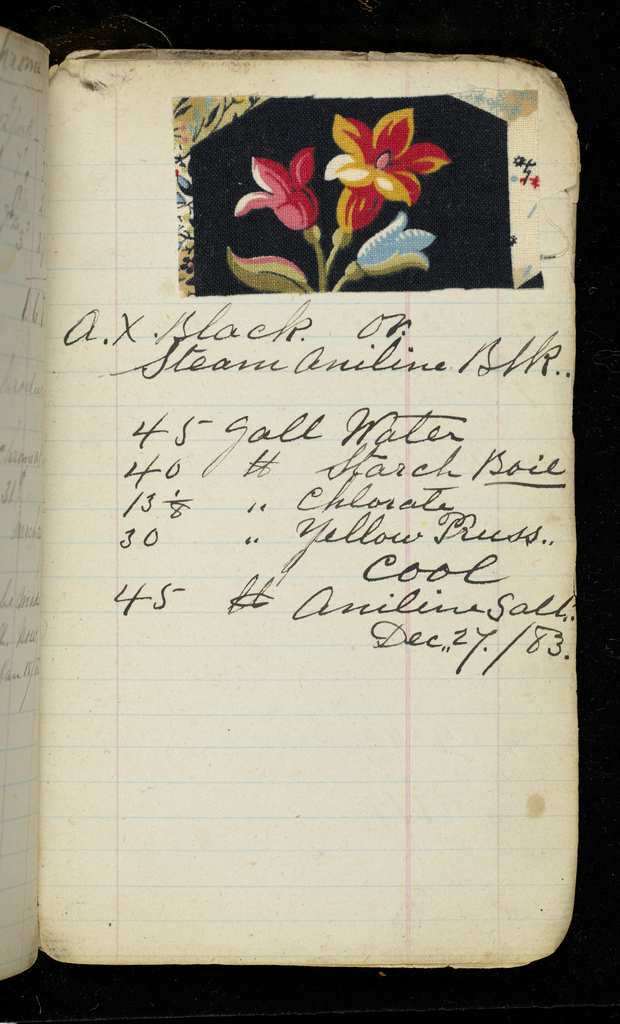 A.X. Black. or
Steam Aniline Blk..
45 Gall Water
40 # Starch Boil
13 1/8 " Chlorate
30 " Yellow Pruss..
Cool
45 # Aniline Salt.
Dec. 27. /83.